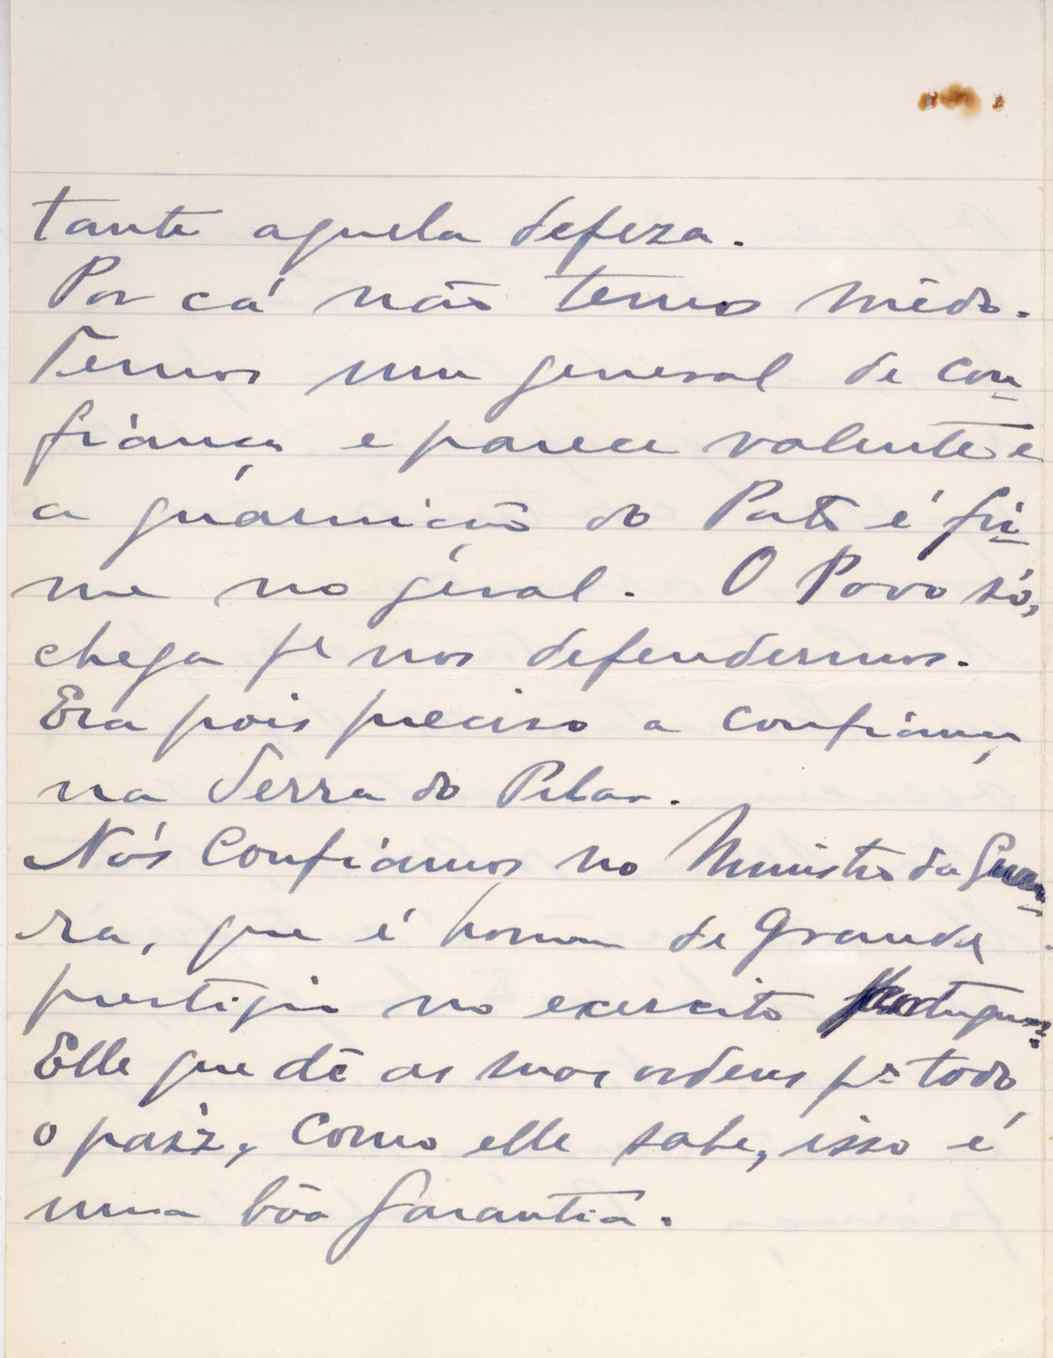 tante aquela defeza.
Por cá não temos mêdo.
Temos um general de con-
fiança e parece valente e
a guarnição do Porto é fir-
me no géral. O Povo só,
chega pª nos defendermos.
Era pois preciso a confiança
na Serra do Pilar.
Nós confiamos no Ministro da Guer-
ra, que é homem de grande
prestigio no exercito Portuguez.
Elle que dê as suas ordens pª todo
o paiz, como elle sabe, isso é
uma bôa garantia.